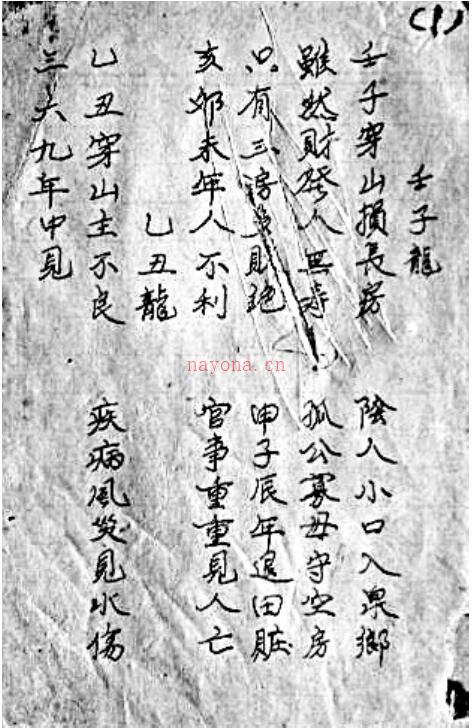 (1)
壬子龍
壬子穿山損長房 陰人小口入泉鄉
雖然財發人無壽 孤公寡母守空房
只有三房財 申子辰年退田賍
亥卯未年人不利 官事重重見人亡
乙丑龍
乙丑穿山主不良 疾病風災見水傷
三六九年中見
nayona.cn